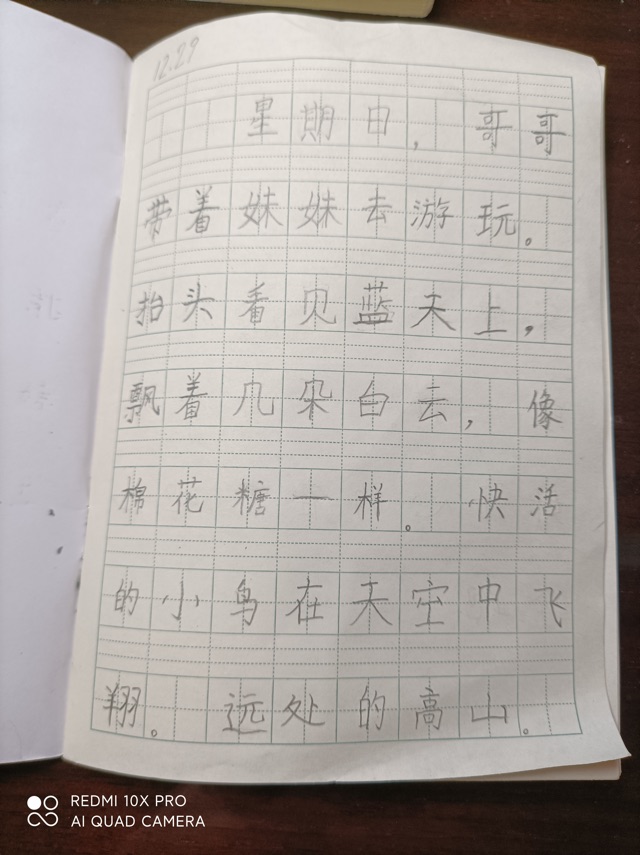 12.29
星期日，哥哥
带着妹妹去游玩。
抬头看见蓝天上，
飘着几朵白云，像
棉花糖一样。快活
的小鸟在天空中飞
翔。远处的高山。
REDMI 10X PRO
AI QUAD CAMERA